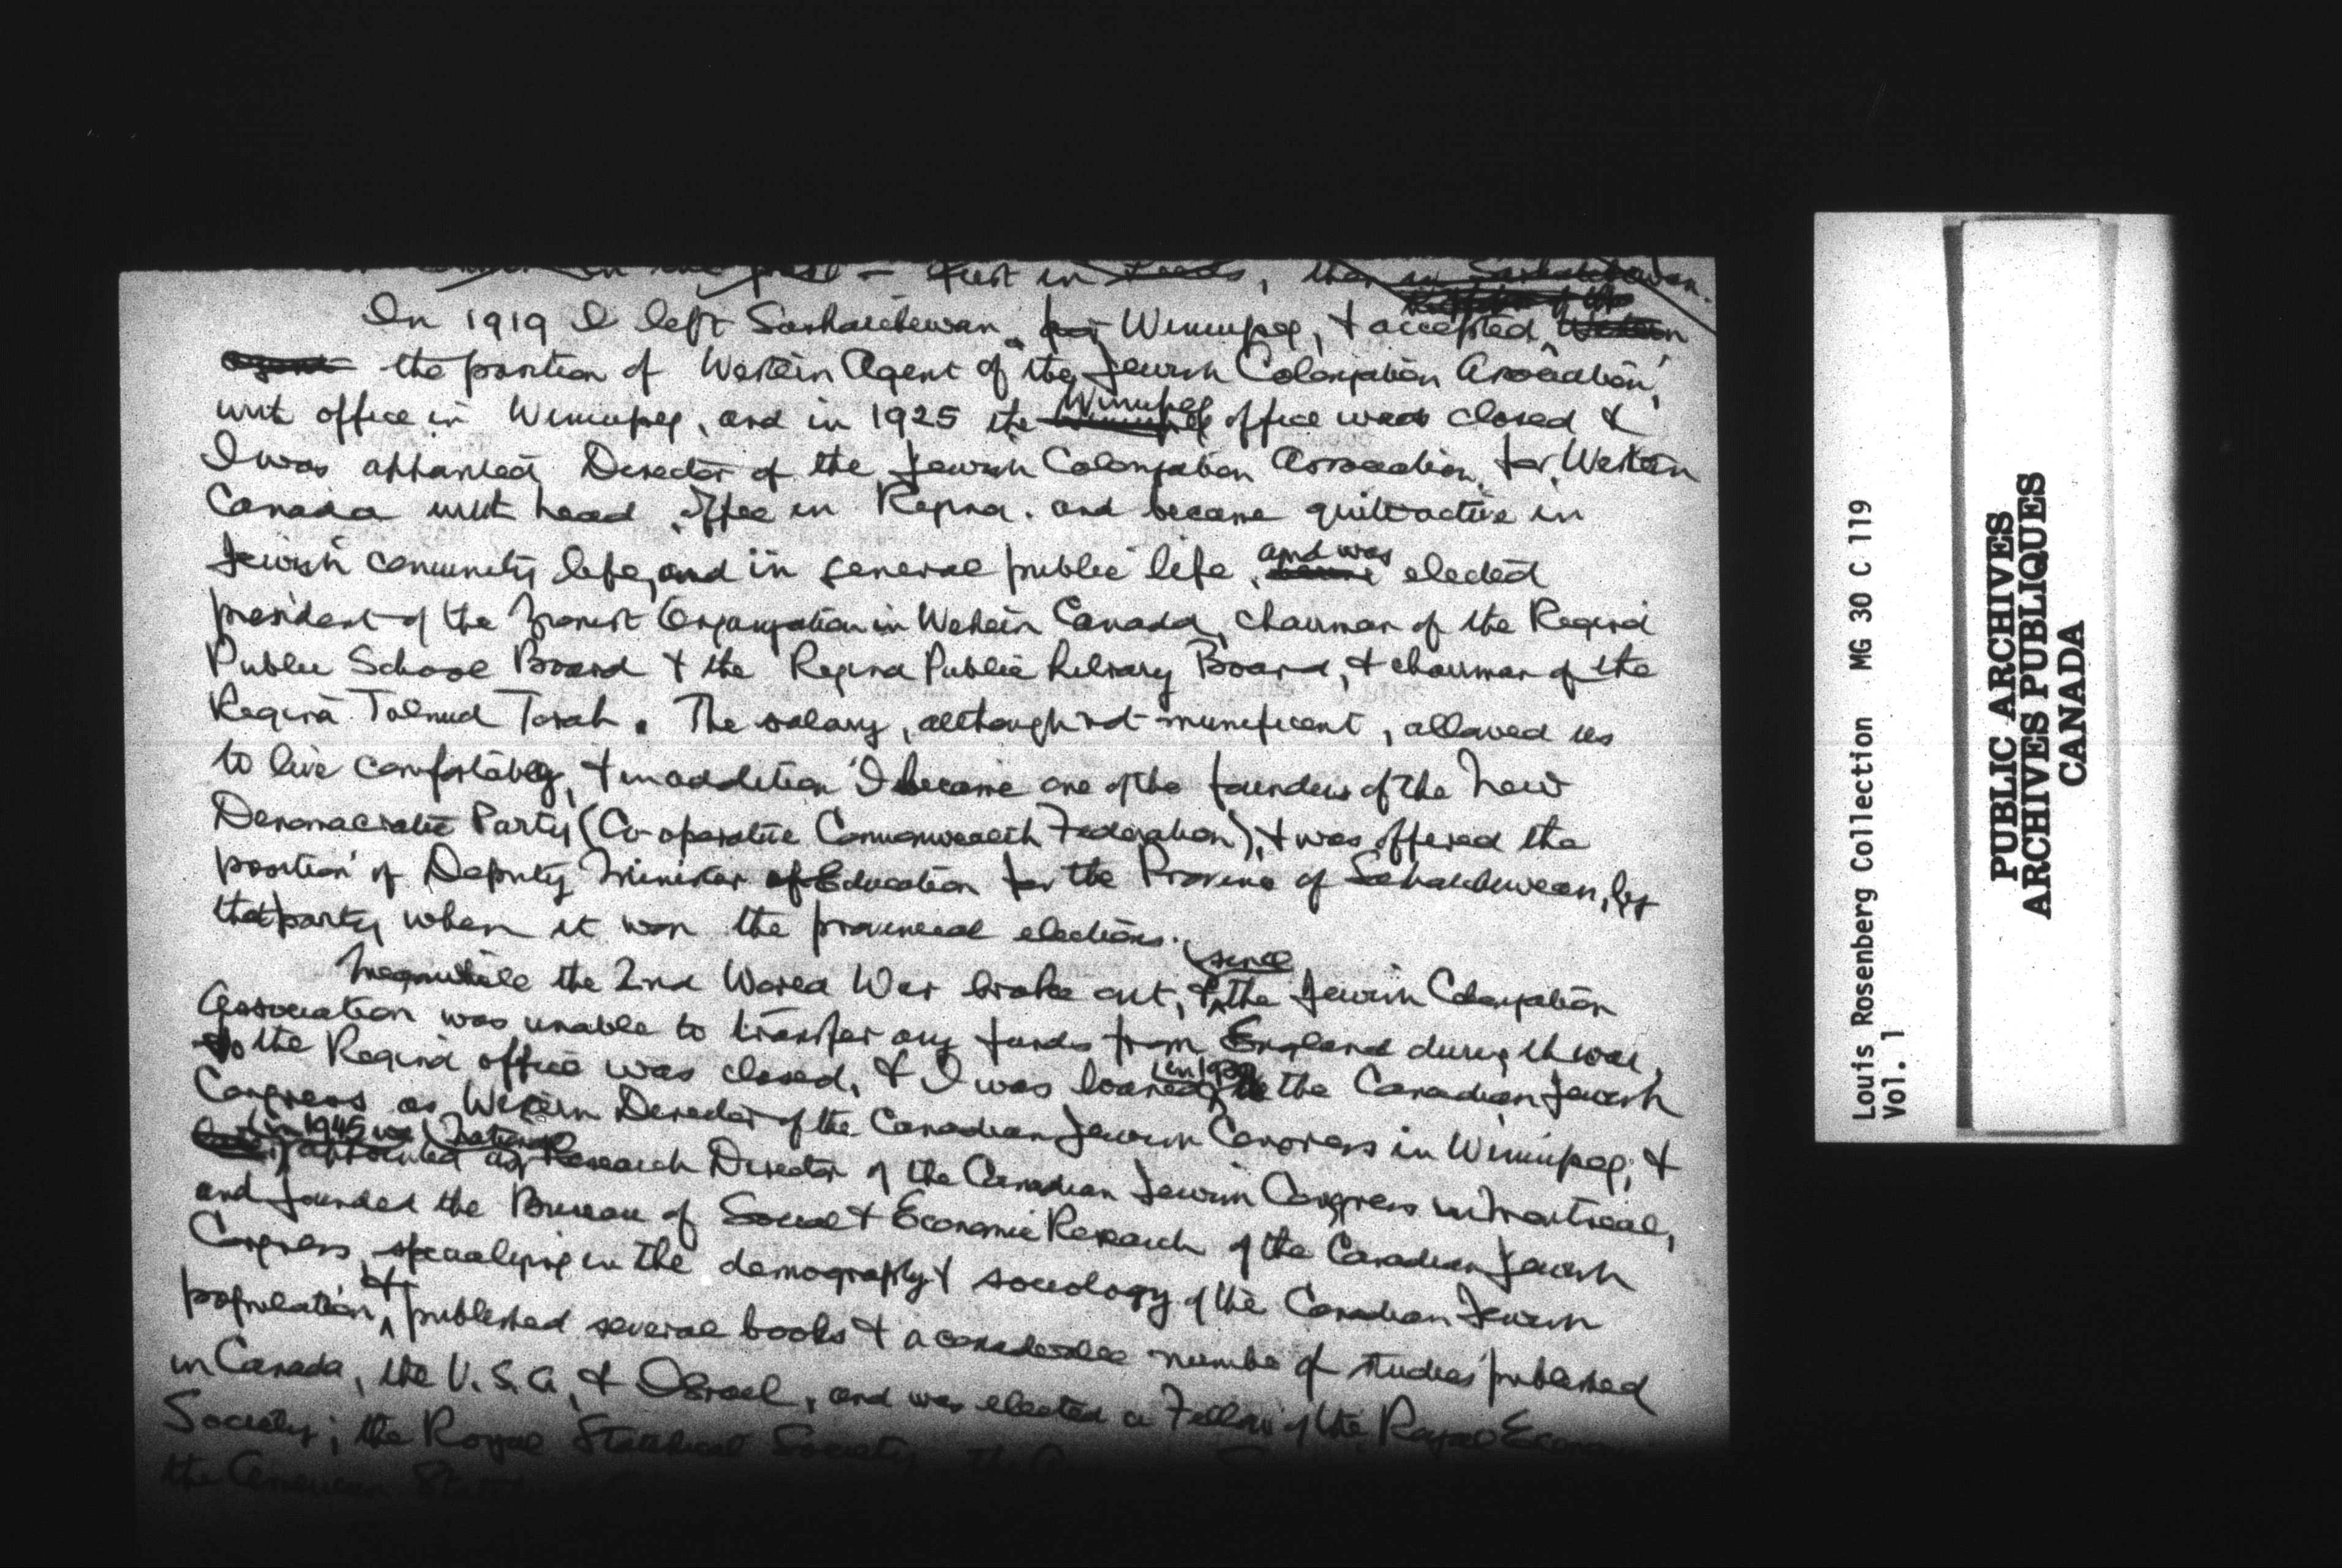 - first in Leeds, then in Saskatchewan.
In 1919 I left Saskatchewan for Winnipeg, & accepted Western
agent the position of Western Agent of the Jewish Colonization Association,
with office in Winnipeg, and in 1925 the Winnipeg office was closed &
I was appointed Director of the Jewish Colonization Association for Western
Canada with head office in Regina. and became quite active in
Jewish community life, and in general public life, and was elected
president of the Zionist Organization in Western Canada, chairman of the Regina
Public School Board & the Regina Public Library Board, & chairman of the
Regina Talmud Torah. The salary, although not munificent, allowed us
to live comfortably, & in addition I became one of the founders of the New
Democratic Party (Co-operative Commonwealth Federation), & was offered the
position of Deputy Minister of Education for the Province of Saskatchewan, by
that party when it won the provincial elections.
Meanwhile the 2nd World War broke out, & since the Jewish Colonization
Association was unable to transfer any funds from England during th war,
so the Regina office was closed, & I was loaned in to the Canadian Jewish
Congress as Western Director of the Canadian Jewish Congress in Winnipeg; &
in 1945 was appointed as National Research Director of the Canadian Jewish Congress in Montreal,
and founded the Bureau of Social & Economic Research of the Canadian Jewish
Congress, specializing in the demography & sociology of the Canadian Jewish
population, & published several books & a considerable number of studies published
in Canada, the U.S.A, & Israel, and was elected a Fellow of the Royal
Society; the Royal Statistical Society, the
the American
Louis Rosenberg Collection MG 30 C 119
Vol. 1
PUBLIC ARCHIVES
ARCHIVES PUBLIQUES
CANADA